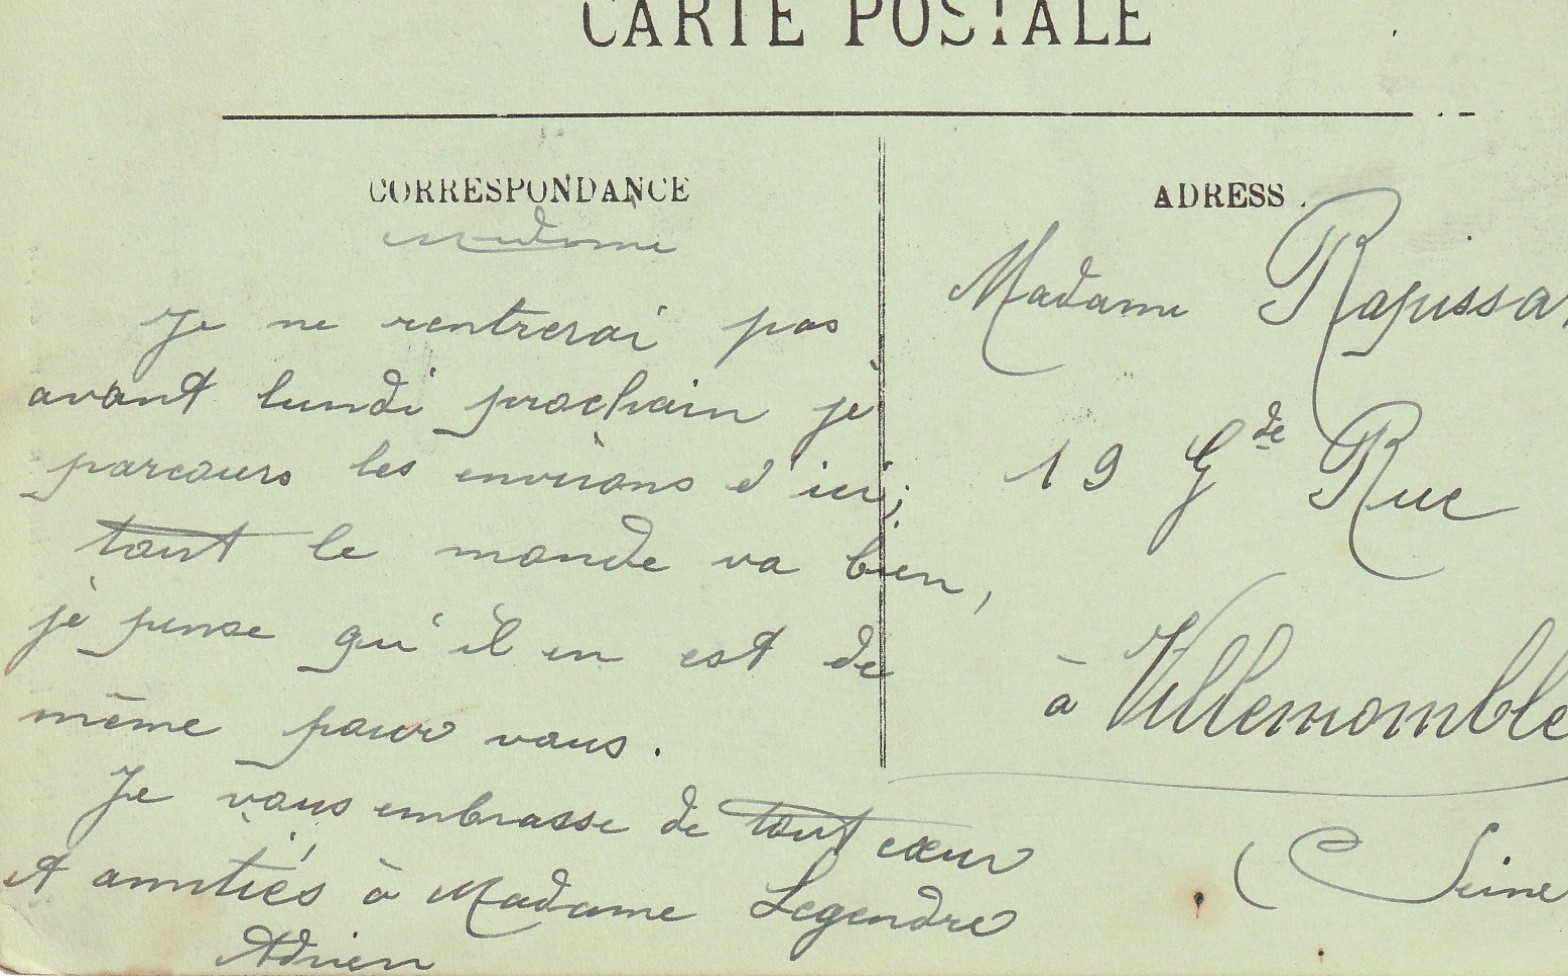 CARTE POSTALE
CORRESPONDANCE
Madame
Je ne rentrerai pas
avant lundi prochain je
parcours les environs d'ici;
tout le monde va bien,
je pense qu'il en est de
même pour vous.
Je vous embrasse de tout cœur
et amitiés à Madame Legendre
Adrien
ADRESS
Madame
19 Gde Rue
à Villemomble
(Seine